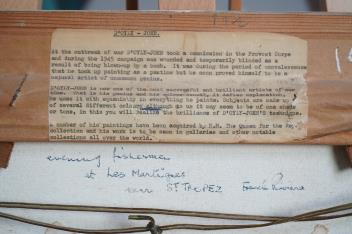 D'OYLY - JOHN.
At the outbreak of war D'OYLY-JOHN took a commission in the Provost Corps
and during the 1943 campaign was wounded and temporarily blinded as a
result of being blown-up by a bomb. It was during the period of convalescence
that he took up painting as a pastime but he soon proved himself to be a
natural artist of immense genius.
D'OYLY-JOHN is now one of the most successful and brilliant artists of our
time. What is his genius and his colour-sense, it defies explanation,
he uses it with equanimity in everything he paints. Subjects are made up
of several different colours although to us it may seem to be of one shade
or tone, in this you will realise the brilliance of D'OYLY-JOHN'S technique.
A number of his paintings have been acquired by H.M. The Queen for the
collection and his work is to be seen in galleries and other notable
collections all over the world.
evening fisherman
at Les Martigues
near ST TROPEZ French Riviera